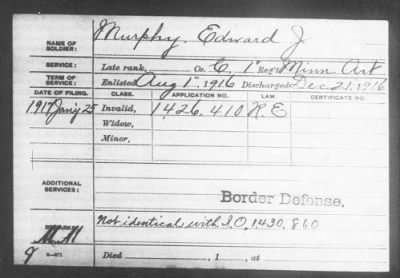 NAME OF SOLDIER: Murphy, Edward J.
SERVICE: Late rank, Co. C, 1" Reg't Minn Art
TERM OF SERVICE: Enlisted Aug 1", 1916 Discharged Dec 21, 1916
DATE OF FILING. CLASS. APPLICATION NO. LAW. CERTIFICATE NO.
1917 Jan'y 25 Invalid, 1,426,410 R.E
Widow,
Minor,
ADDITIONAL SERVICES:
Border Defense.
REMARKS: Not identical with S.O. 1,430,860
Died , 1 , at